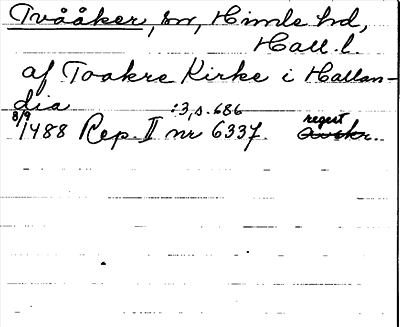 Tvååker, sn, Himle hd,
Hall. l.
af Toakre Kirke i Hallan-
dia
8/9 1488 Rep. II :3, s. 686 nr 6337. regest